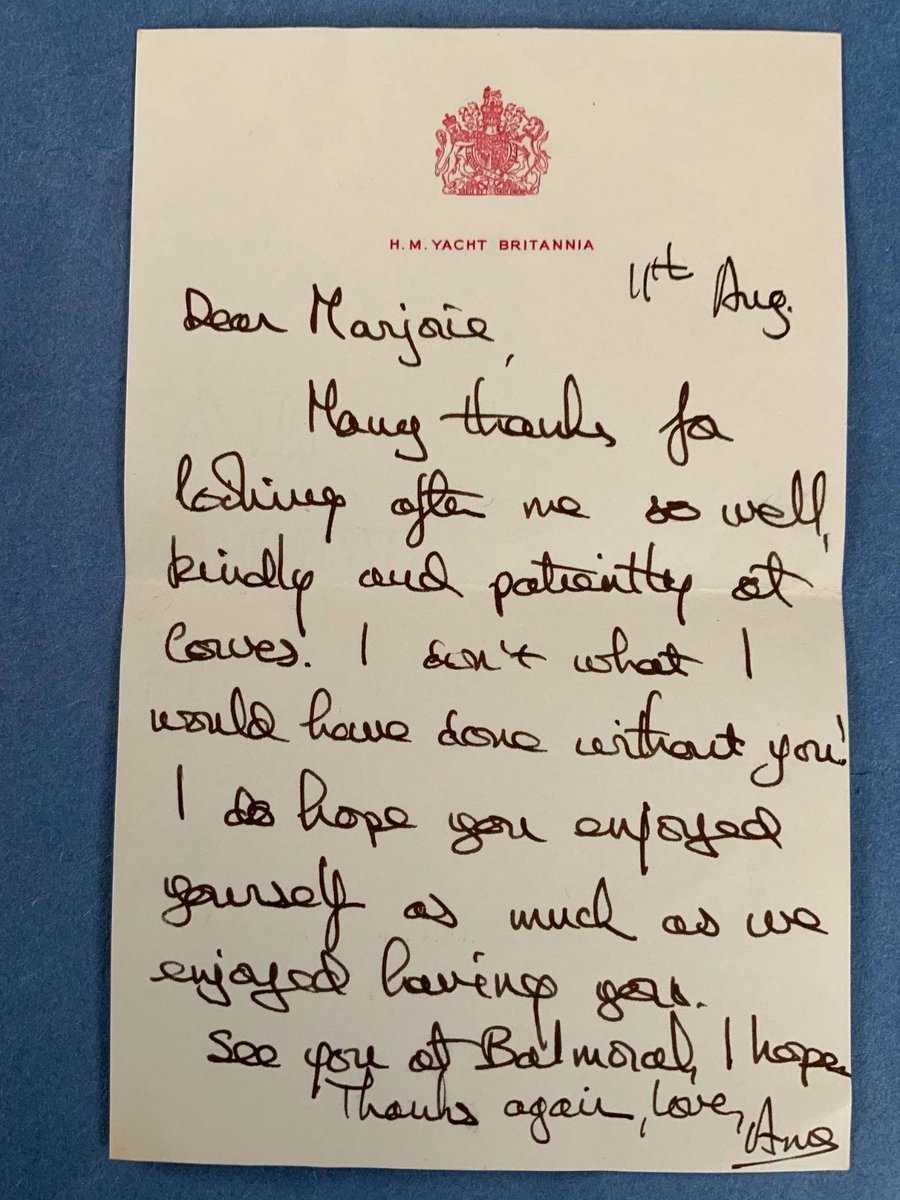 H.M. YACHT BRITANNIA
11th Aug.
Dear Marjorie,
Many thanks for
looking after me so well,
kindly and patiently at
Cowes. I don't what I
would have done without you!
I do hope you enjoyed
yourself as much as we
enjoyed having you.
See you at Balmoral, I hope.
Thanks again, love,